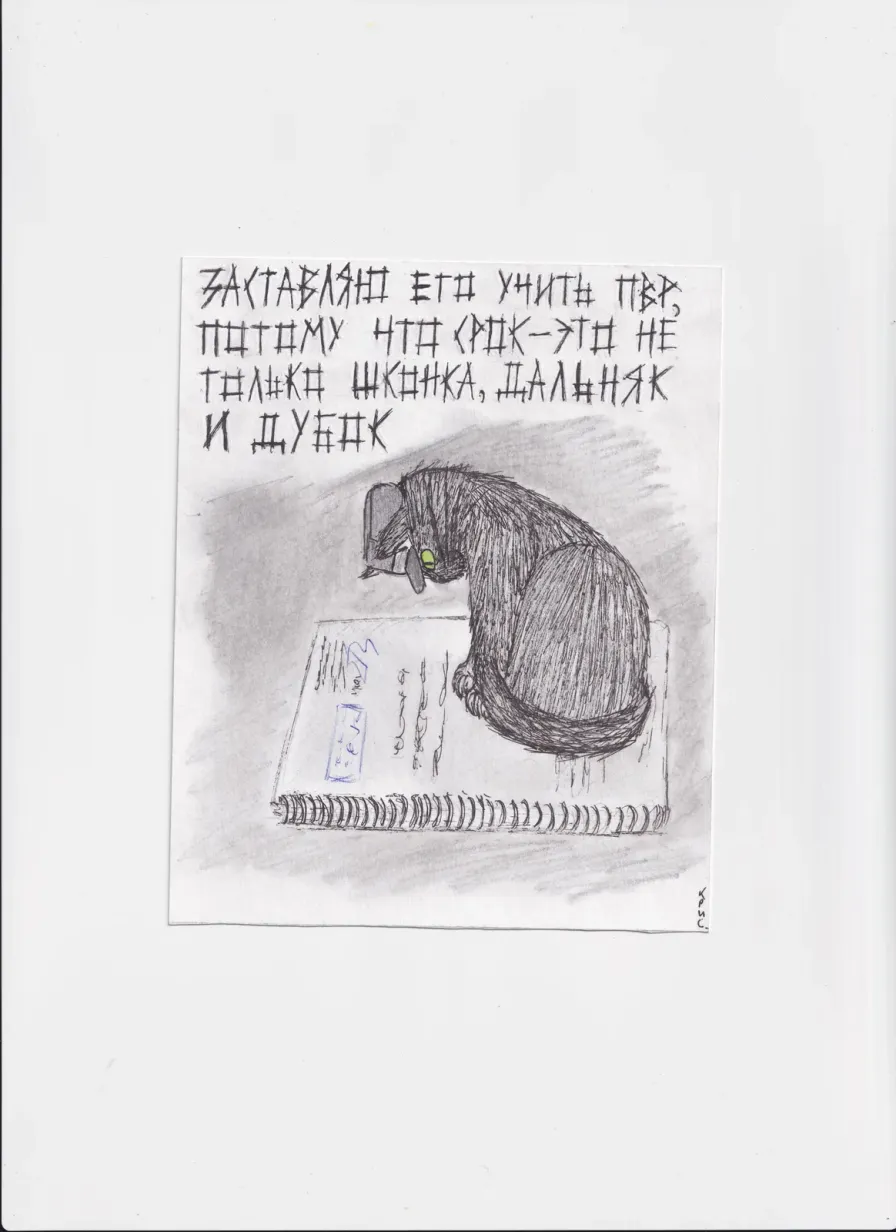 ЗАСТАВЛЯЮ ЕГО УЧИТЬ ПВР,
ПОТОМУ ЧТО СРОК-ЭТО НЕ
ТОЛЬКО ШКОНКА, ДАЛЬНЯК
И ДУБОК
КРИС.